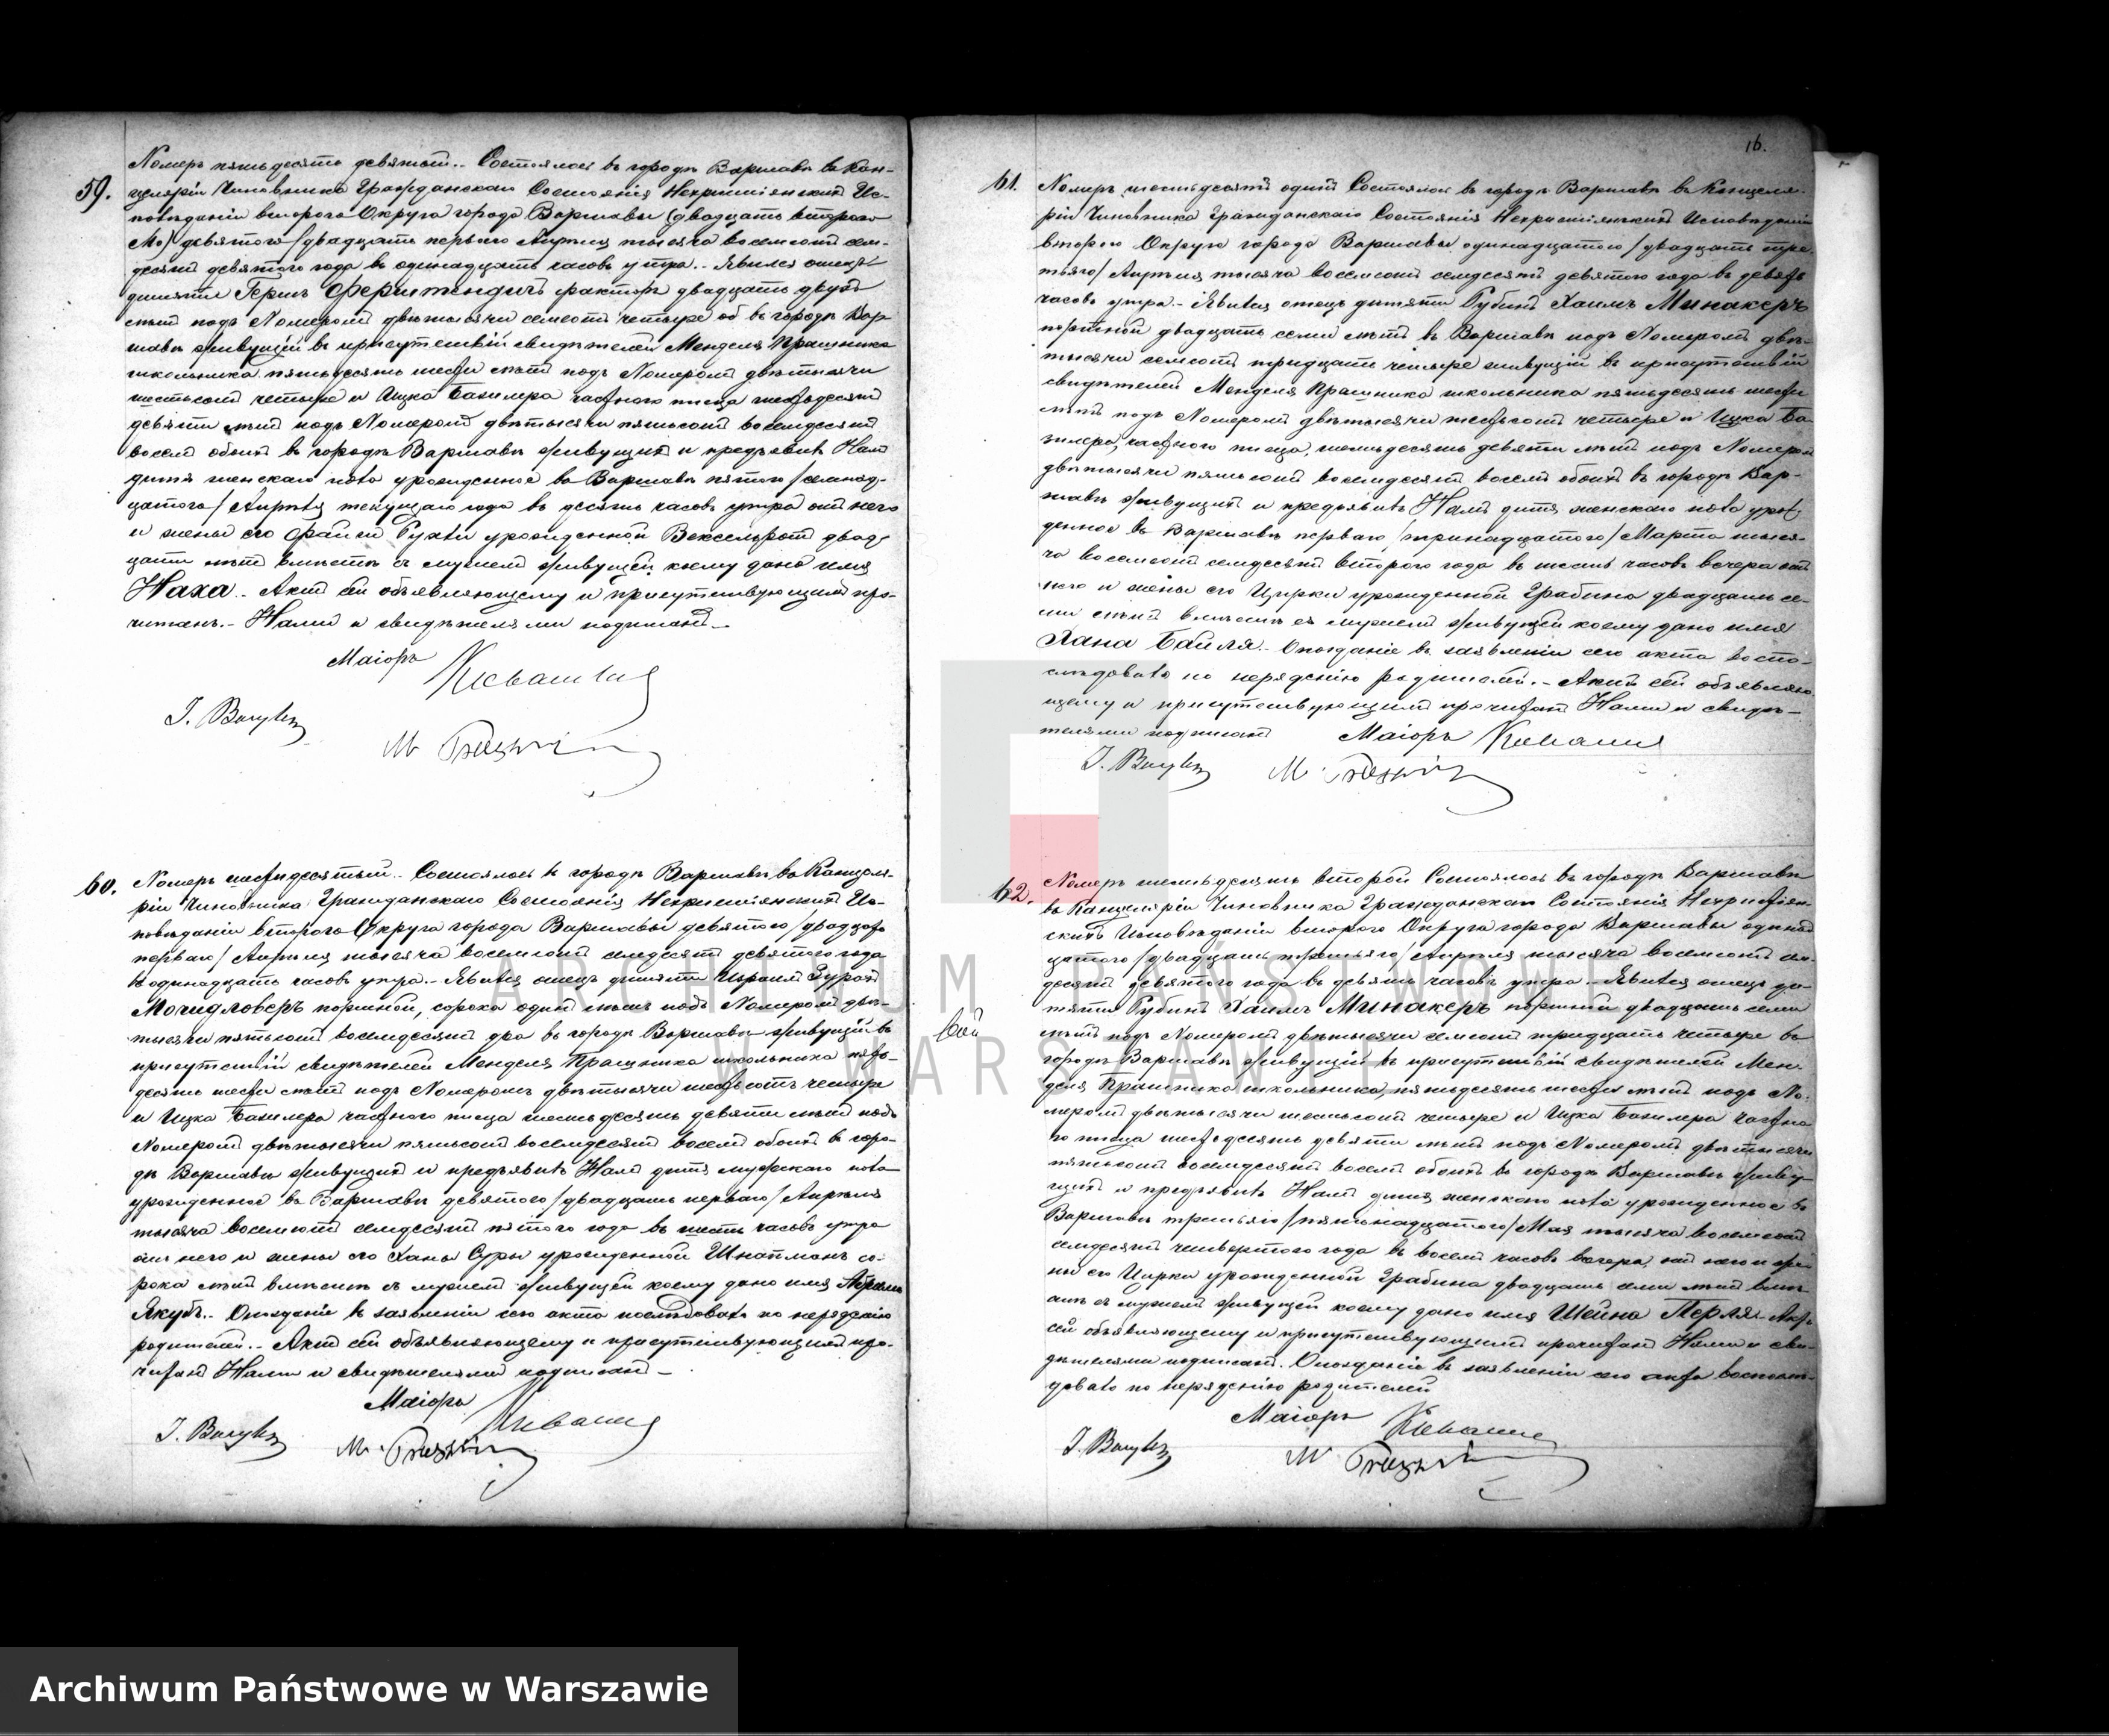 59.
Номеръ пятьдесятъ девятый. Состоялось въ городѣ Варшавѣ въ Кан-
целяріи Чиновника Гражданскаго Состоянія Нехристіянскихъ Ис-
повѣданій втораго Округа города Варшавы
девятого /двадцать перваго Апрѣля тысяча восемсотъ сем-
десятъ девятого года въ одинадцать часовъ утра.. Явился отецъ
дитяти Гершъ факторъ двадцать двухъ
лѣтъ подъ Номеромъ двѣтысячи семсотъ четыре въ городѣ Вар-
шавѣ живущій въ присутствій свидѣтелей Менделя Прашника
школьника пятьдесятъ шести лѣтъ подъ Номеромъ двѣтысячи
шестьсотъ четыре и Ицка Бакилера частного писца шестьдесятъ
девяти лѣтъ подъ Номеромъ двѣтысячи пятьсотъ восемдесятъ
восемъ обоихъ въ городѣ Варшавѣ живущихъ и предъявилъ Намъ
дитя женскаго пола урожденное въ Варшавѣ пятого /семнад-
цатого/ Апрѣля текущаго года въ десять часовъ утра отъ него
и жены его Файги Рухли урожденной Вексельротъ двад-
цати лѣтъ вмѣстѣ съ мужемъ живущей, коему дано имя
Наха.. Актъ сей объявляющему и присутствующимъ про-
читанъ.- Нами и свидѣтелями подписанъ.-
Маіоръ
60.
Номеръ шестидесятый.. Состоялось въ городѣ Варшавѣ въ Канцеля-
ріи Чиновника Гражданскаго Состоянія Нехристіянскихъ Ис-
повѣданій втораго Округа города Варшавы девятого /двадцать
перваго/ Апрѣля тысяча восемсотъ семдесятъ девятого года
въ одинадцать часовъ утра.. Явился отецъ дитяти Израиль
портной, сорока одинъ лѣтъ подъ Номеромъ двѣ-
тысячи пятьсотъ восемдесятъ два въ городѣ Варшавѣ живущій въ
присутствій свидѣтелей Менделя Прашника школьника пять-
десятъ шести лѣтъ подъ Номеромъ двѣтысячи шестьсотъ четыре
и Ицка Бакилера частного писца шестьдесятъ девяти лѣтъ подъ
Номеромъ двѣтысячи пятьсотъ восемдесятъ восемъ обоихъ въ горо-
дѣ Варшавѣ живущихъ и предъявилъ Намъ дитя мужескаго пола
урожденное въ Варшавѣ девятого /двадцать перваго/ Апрѣля
тысяча восемсотъ семдесятъ пятого года въ шесть часовъ утра
отъ него и жены его Ханы Суры урожденной Шнапманъ со-
рока лѣтъ вмѣстѣ съ мужемъ живущей коему дано имя Абрамъ
Якубъ.. Опозданіе въ заявленіи сего акта послѣдовало по нерадѣнію
родителей.. Актъ сей объявляющему и присутствующимъ про-
читанъ Нами и свидѣтелями подписанъ -
Маіоръ
16.
61.
Номеръ шестьдесятъ одинъ Состоялось въ городѣ Варшавѣ въ Канцеля-
ріи Чиновника Гражданскаго Состоянія Нехристіянскихъ Исповѣданій
втораго Округа города Варшавы одинадцатого /двадцать тре-
тьяго/ Апрѣля тысяча восемсотъ семдесятъ девятого года въ девять
часовъ утра.- Явился отецъ дитяти Рубинъ Хаимъ Минакеръ
портной двадцать семи лѣтъ въ Варшавѣ подъ Номеромъ двѣ-
тысячи семсотъ тридцать четыре живущій въ присутствій
свидѣтелей Менделя Прашника школьника пятьдесятъ шести
лѣтъ подъ Номеромъ двѣтысячи шестьсотъ четыре и Ицка Ба-
килера, частного писца, шестьдесятъ девяти лѣтъ подъ Номеромъ
двѣтысячи пятьсотъ восемдесятъ восемъ обоихъ въ городѣ Вар-
шавѣ живущихъ и предъявилъ Намъ дитя женскаго пола урож-
денное въ Варшавѣ перваго /тринадцатого/ Марта тыся-
ча восемсотъ семдесятъ втораго года въ шесть часовъ вечера отъ
него и жены его Цирки урожденной Грабина двадцать се-
ми лѣтъ вмѣстѣ съ мужемъ живущей коему дано имя
Хана Байля.. Опозданіе въ заявленіи сего акта воспо-
слѣдовало по нерадѣнію родителей.- Актъ сей объявляю-
щему и присутствующимъ прочитанъ Нами и свидѣ-
телями подписанъ
Маіоръ
62.
Номеръ шестьдесятъ второй Состоялось въ городѣ Варшавѣ
въ Канцеляріи Чиновника Гражданскаго Состоянія Нехристіян-
скихъ Исповѣданій втораго Округа города Варшавы одинад-
цатого /двадцать третьяго/ Апрѣля тысяча восемсотъ сем-
десятъ девятого года въ девять часовъ утра.. Явился отецъ ди-
тяти Рубинъ Хаимъ Минакеръ портной двадцать семи
лѣтъ подъ Номеромъ двѣтысячи семсотъ тридцать четыре въ
городѣ Варшавѣ живущій въ присутствій свидѣтелей Мен-
деля Прашника школьника, пятьдесятъ шести лѣтъ подъ Но-
меромъ двѣтысячи шестьсотъ четыре и Ицка Бакилера частно-
го писца шестьдесятъ девяти лѣтъ подъ Номеромъ двѣтысячи
пятьсотъ восемдесятъ восемъ обоихъ въ городѣ Варшавѣ живу-
щихъ и предъявилъ Намъ дитя женскаго пола урожденное въ
Варшавѣ третьяго /пятьнадцатого/ Мая тысяча восемсотъ
семдесятъ четвертого года въ восемъ часовъ вечера, отъ него и же-
ны его Цирки урожденной Грабина двадцать семи лѣтъ вмѣ-
стѣ съ мужемъ живущей коему дано имя Шейна Перля. Актъ
сей объявляющему и присутствующимъ прочитанъ Нами и сви-
дѣтелями подписанъ. Опозданіе въ заявленіи сего акта воспослѣ-
довало по нерадѣнію родителей
Маіоръ
ARCHIWUM PAŃSTWOWE
W WARSZAWIE
Archiwum Państwowe w Warszawie